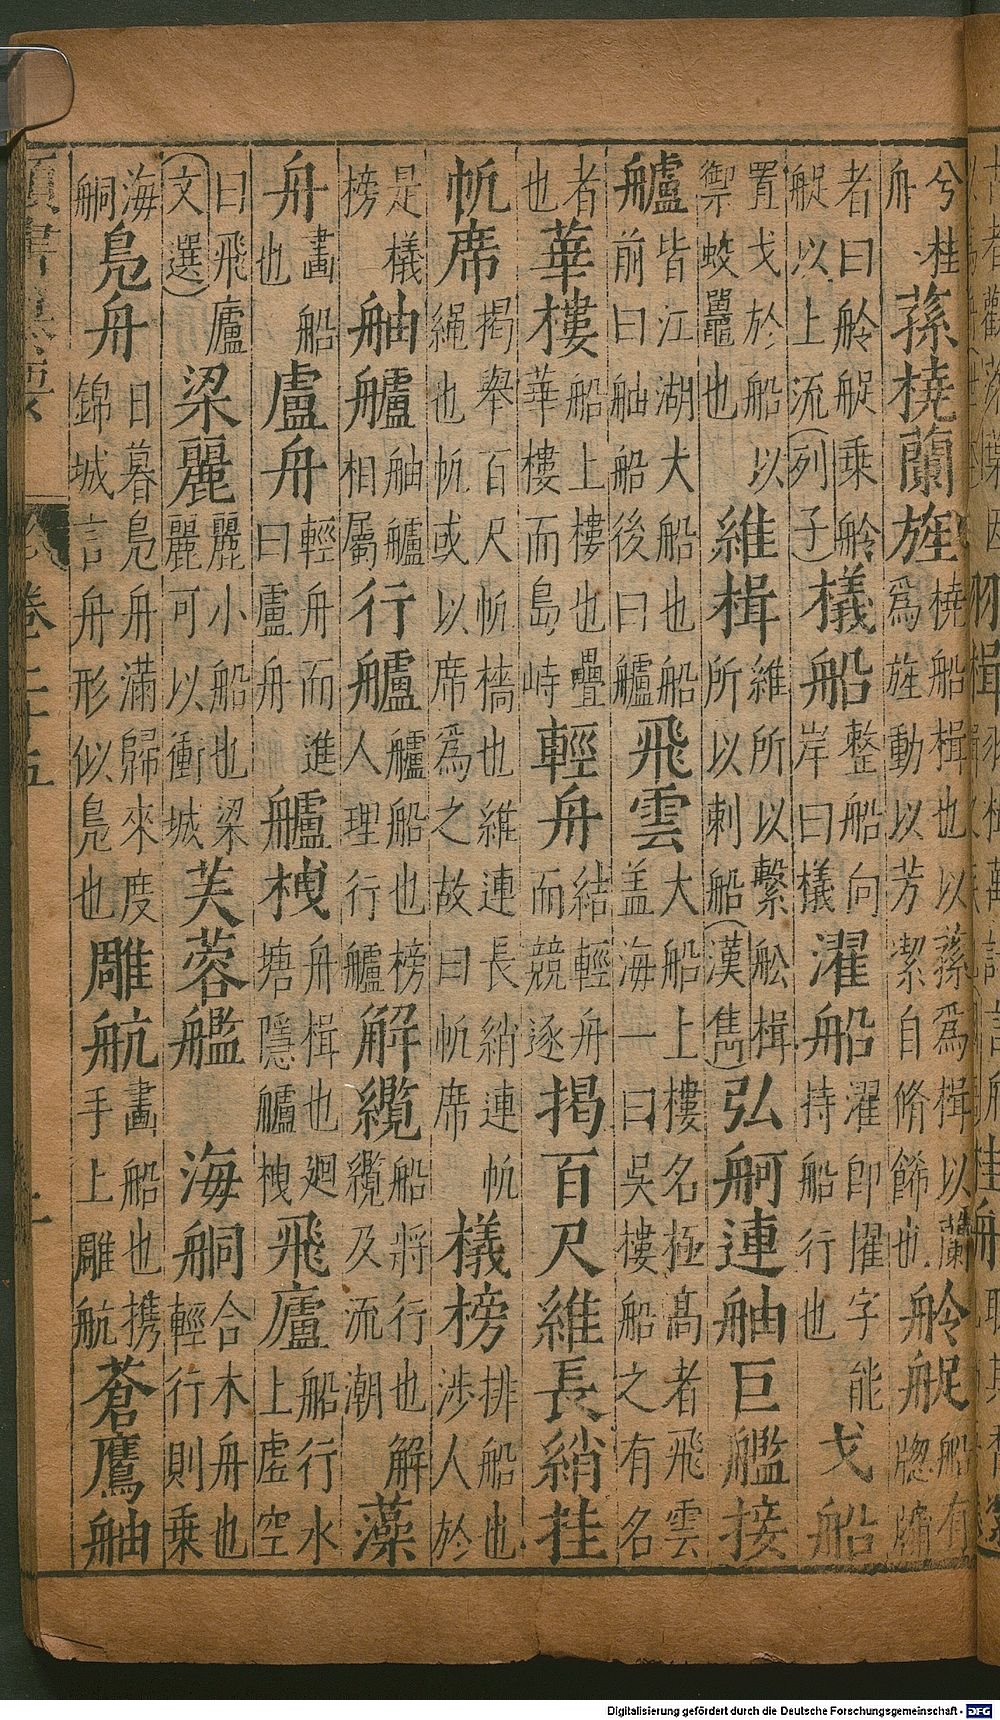 兮桂舟蓀橈蘭旌橈船楫也以蓀爲楫以蘭爲旌動以芳潔自脩餙也舲艇船有牕牖
者曰舲艇乘舲艇以上流(列子)檥船整船向岸曰檥濯船濯卽櫂字能持船行也戈船
置戈於船以禦蛟鼉也維楫維所以繫船楫所以剌船(漢雋)弘舸連舳巨艦接
艫皆江湖大船也船前曰舳船後曰艫飛雲大船上樓名極高者飛雲盖海一曰吳樓船之有名
者也華樓船上樓也疊華樓而島峙輕舟結輕舟而競逐揭百尺維長綃挂
帆席揭舉百尺帆檣也維連長綃連帆繩也帆或以席爲之故曰帆席檥榜排船也涉人於
是檥榜舳艫舳艫相屬行艫艫船也榜人理行艫解纜船將行也解纜及流潮藻
舟畫船也盧舟輕舟而進曰盧舟艫栧舟楫也廻塘隱艫栧飛廬船行水上虛空
曰飛廬(文選)梁麗麗小船也梁麗可以衝城芙蓉艦海舸合木舟也輕行則乘
海舸鳧舟日暮鳧舟滿歸來度錦城言舟形似鳧也雕航畫船也携手上雕航蒼鷹舳
卷二十五
Digitalisierung gefördert durch die Deutsche Forschungsgemeinschaft - DFG